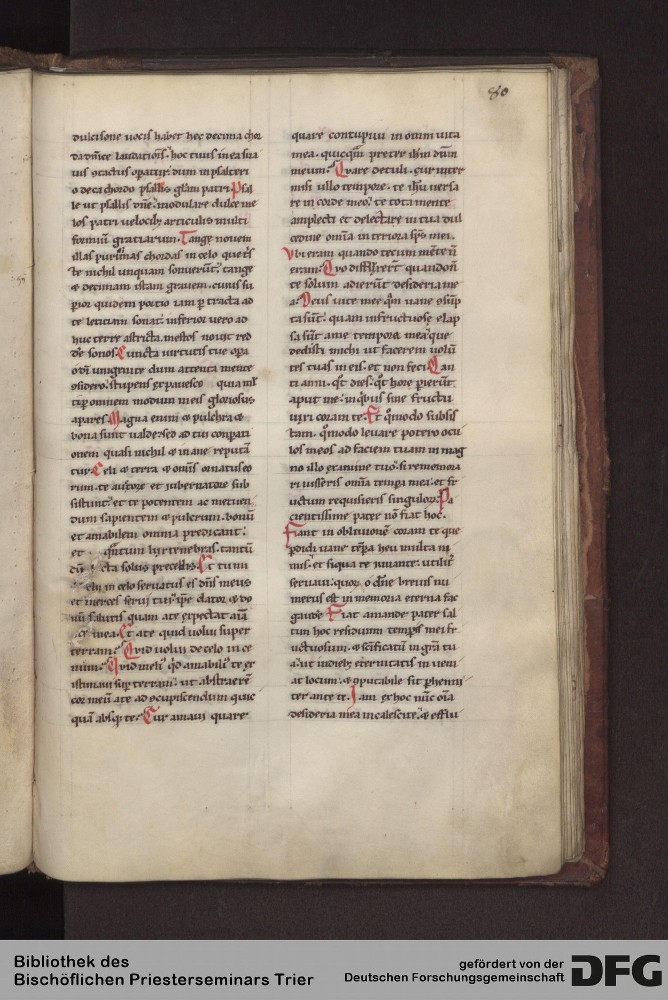 80
dulcisone uocis habet hec decima chor
da dñice laudationis. hoc tuus in ea sua
uis ꝯtactus operatur dum in psalteri
o decachordo psallis glam patri. Psal
le ut psallis dñe. modulare dulce me
los patri uelocibꝫ articulis multi
formium gratiarum. Tange nouem
illas purissimas chordas in celo que
nichil unquam sonuerunt. tange
⁊ decimam istam grauem. cuius su
perior quidem portio iam ꝑ tracta ad
te leticiam sonat. inferior uero ad
huc terre astricta. mestos nouit red
de sonos. Cuncta uirtutis tue opa
o dñ unigenite dum attenta mente
ꝯsidero. stupens expauesco
omnem modum in eis gloriosus
apares. Magna enim ⁊ pulchra ⁊
bona sunt ualde. sed ad tui conpati
onem quasi nichil ⁊ inane reputan
tur. Celi ⁊ terra ⁊ omnis ornatus eo
rum. te auctore et gubernatore sub
sistunt. et te potentem ac metuen
dum sapientem ⁊ pulcrum. bonum
et amabilem omnia predicant.
et quantum lux tenebras. tantum
cta solus precellis. Et tu mi
chi in celo seruatus es dñs meus
et merces serui tui. ipse dator ⁊ do
num salutis quam a te expectat aĩa
mea. Et a te quid uolui super
terram. Quid uolui de celo in ce
num. Quid melius quid amabilius te ex
istimaui super terram. ut abstraere
cor meum a te ad ꝯcupiscendum quic
quam absꝙ te. Cur amaui quare
quare concupiui in omni uita
mea. quicquam preter ihm dm
meum. Quare detuli. cur inter
misi ullo tempore. te ihm uersa
re in corde meo. te tota mente
amplecti et delectare in tua dul
cedine omnia interiora sps mei.
Vbi eram quando tecum mente non
eram. Quo diffluxerunt quando non
te solum adierunt desideria me
a. Deus uite mee quam uane ꝯsump
ta sunt. quam infructuose elap
sa sunt a me tempora mea que
dedisti michi ut facerem uolun
tes tuas in eis. et non feci. Quan
ti anni. quot dies. quot hore perierunt
aput me. in quibus sine fructu
uixi coram te. Et quomodo subsis
tam. quomodo leuare potero ocu
los meos ad faciem tuam in mag
no illo examine tuo. si rememora
ri iusseris omnia tempora mea. et fr
uctum requisieris singulorum. Pa
cientissime pater non fiat hoc.
Fiant in obliuione coram te que
perdidi uane tempora heu multa ni
mis. et siqua te iuuante. utiliter
seruaui. quorum o dñe breuis nu
merus est in memoria eterna fac
gaude. Fiat amande pater sal
tim hoc residuum temporis mei fr
uctuosum. ⁊ scificatum in gratia tu
a. ut in diebus eternitatis inueni
at locum. ⁊ ꝯputabile sit perhenni
ter ante te. Iam ex hoc nunc oĩa
desideria mea incalescite. ⁊ efflu
Bibliothek des
Bischöflichen Priesterseminars Trier
gefördert von der
Deutschen Forschungsgemeinschaft
DFG